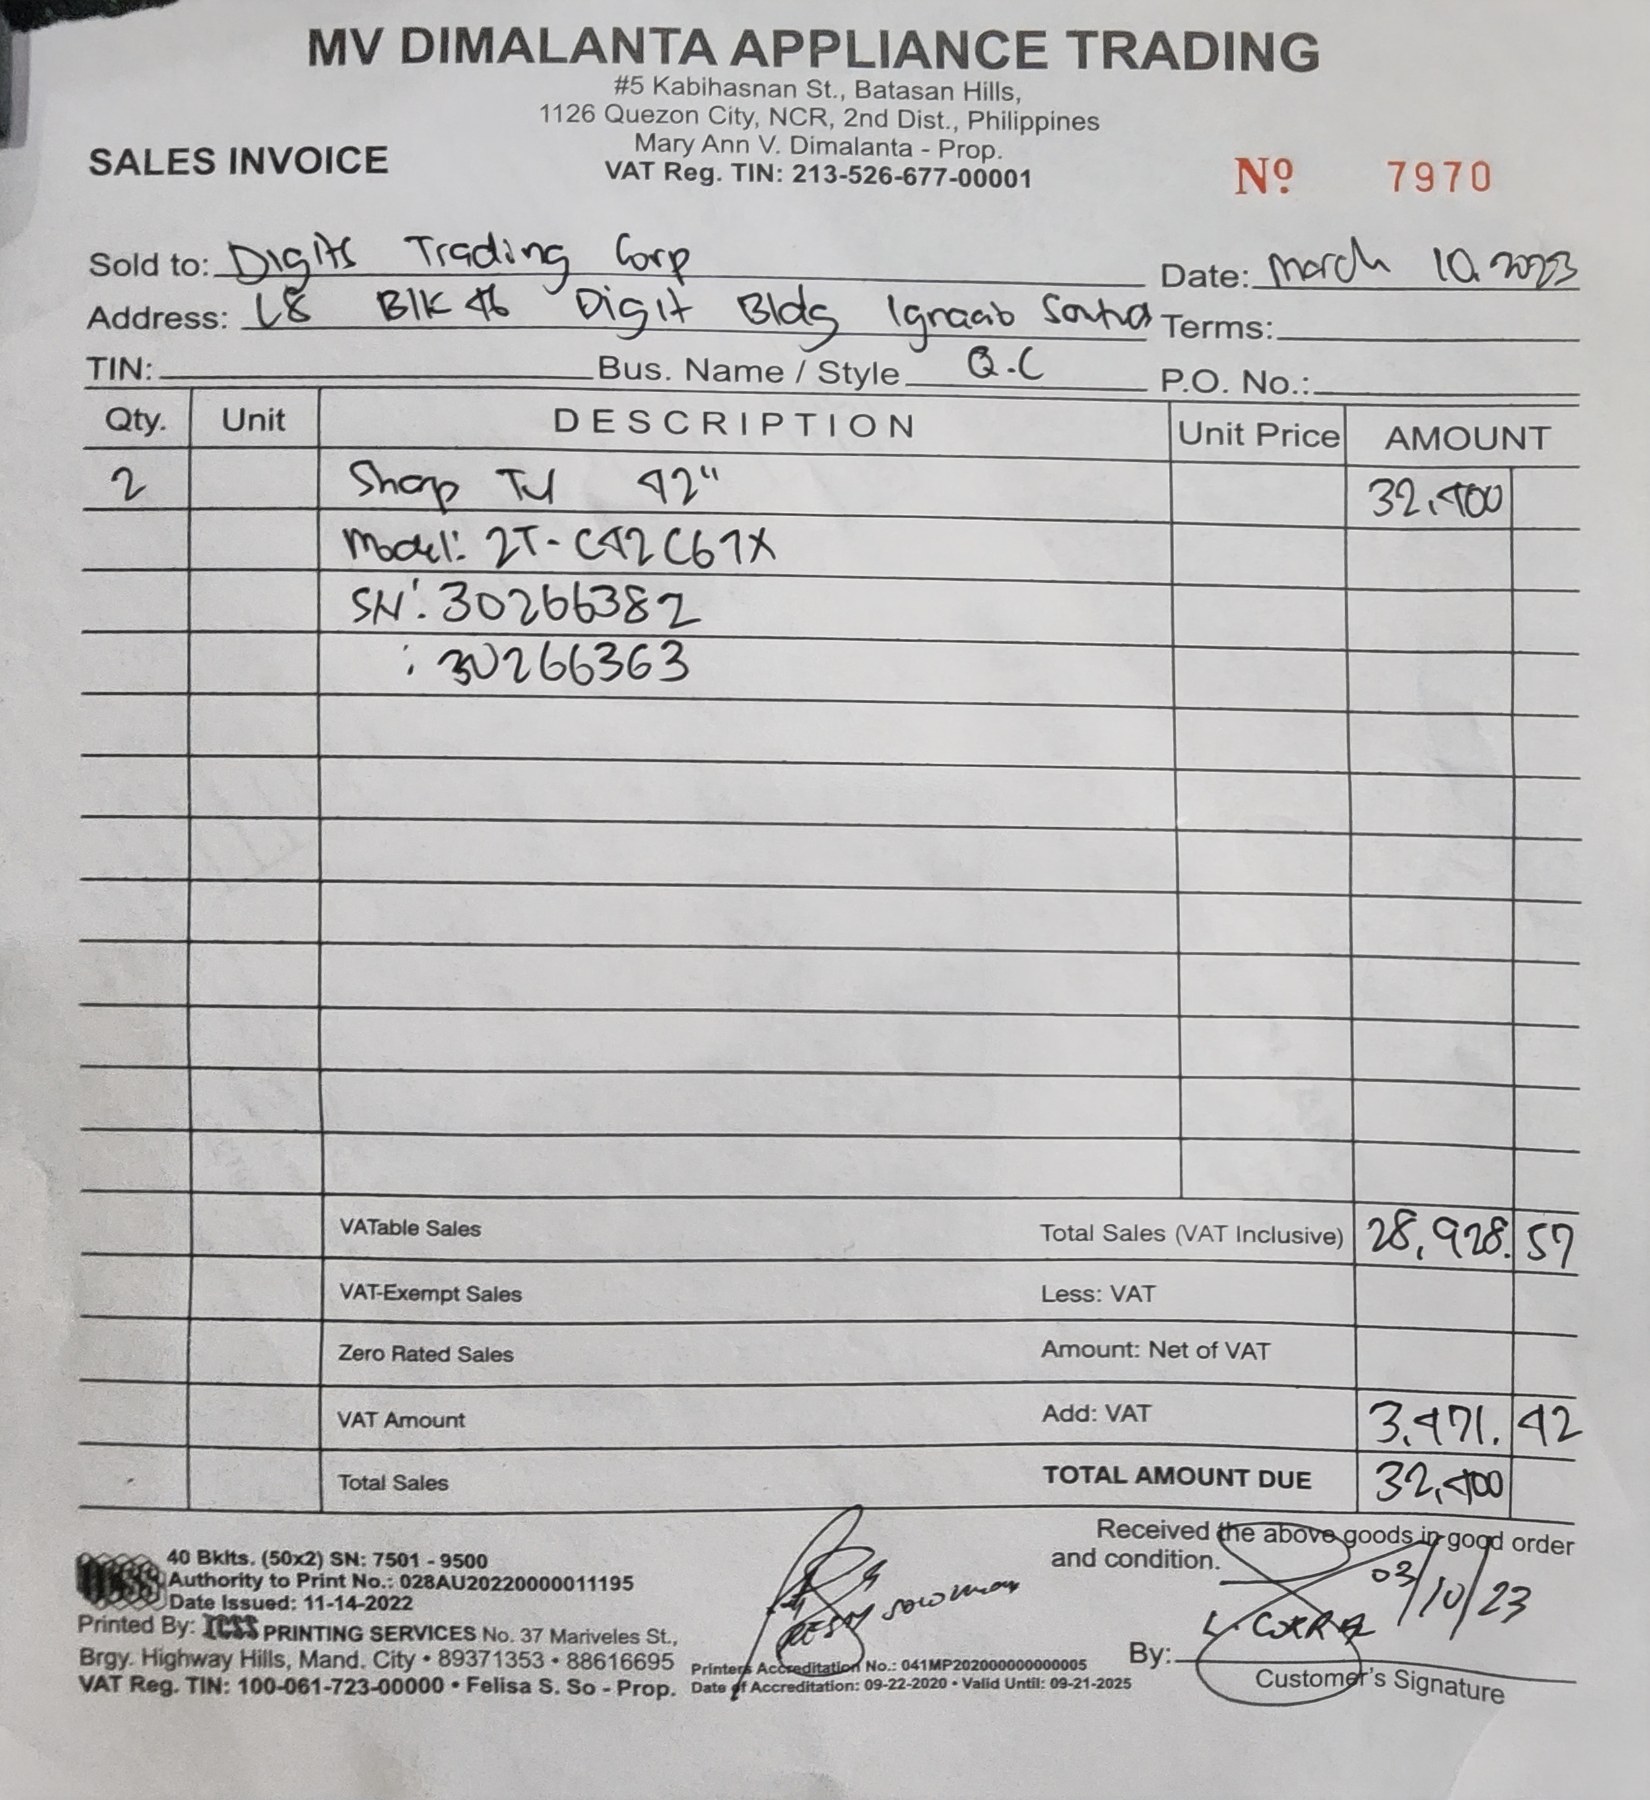 MV DIMALANTA APPLIANCE TRADING
#5 Kabihasnan St., Batasan Hills,
1126 Quezon City, NCR, 2nd Dist., Philippines
Mary Ann V. Dimalanta - Prop.
VAT Reg. TIN: 213-526-677-00001
SALES INVOICE
Nº 7970
Sold to: Digits Trading Corp
Date: March 10, 2023
Address: L8 Blk 46 Digit Bldg
Terms:
TIN: Bus. Name / Style Q.C
P.O. No.:
Qty. Unit DESCRIPTION Unit Price AMOUNT
2 Sharp TV 42" 32,400
Model: 2T-C42C67X
SN: 30266382
: 30266363
VATable Sales Total Sales (VAT Inclusive) 28,928.57
VAT-Exempt Sales Less: VAT
Zero Rated Sales Amount: Net of VAT
VAT Amount Add: VAT 3,471.42
Total Sales TOTAL AMOUNT DUE 32,400
Received the above goods in good order
and condition.
03/10/23
By:
Customer's Signature
40 Bklts. (50x2) SN: 7501 - 9500
Authority to Print No.: 028AU20220000011195
Date Issued: 11-14-2022
Printed By: ICSS PRINTING SERVICES No. 37 Mariveles St.,
Brgy. Highway Hills, Mand. City • 89371353 • 88616695
VAT Reg. TIN: 100-061-723-00000 • Felisa S. So - Prop.
Printers Accreditation No.: 041MP202000000000005
Date of Accreditation: 09-22-2020 • Valid Until: 09-21-2025